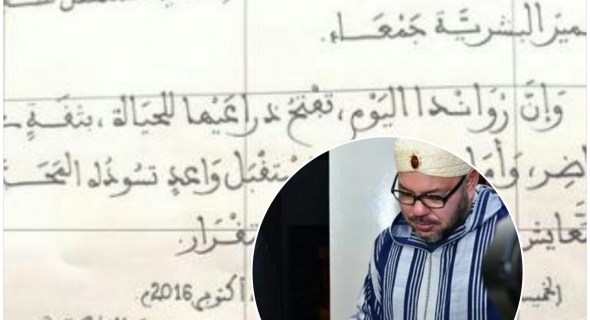 ـمير البشريّة جمعاء.
وإنّ رواندا اليوم، تفتح ذراعيها للحياة، بثقة
ـاضر، وأمـ ـستقبل واعد تسوده المحـ
ـتعايش ـتقرار.
(الخميـ أكتوبر 2016م